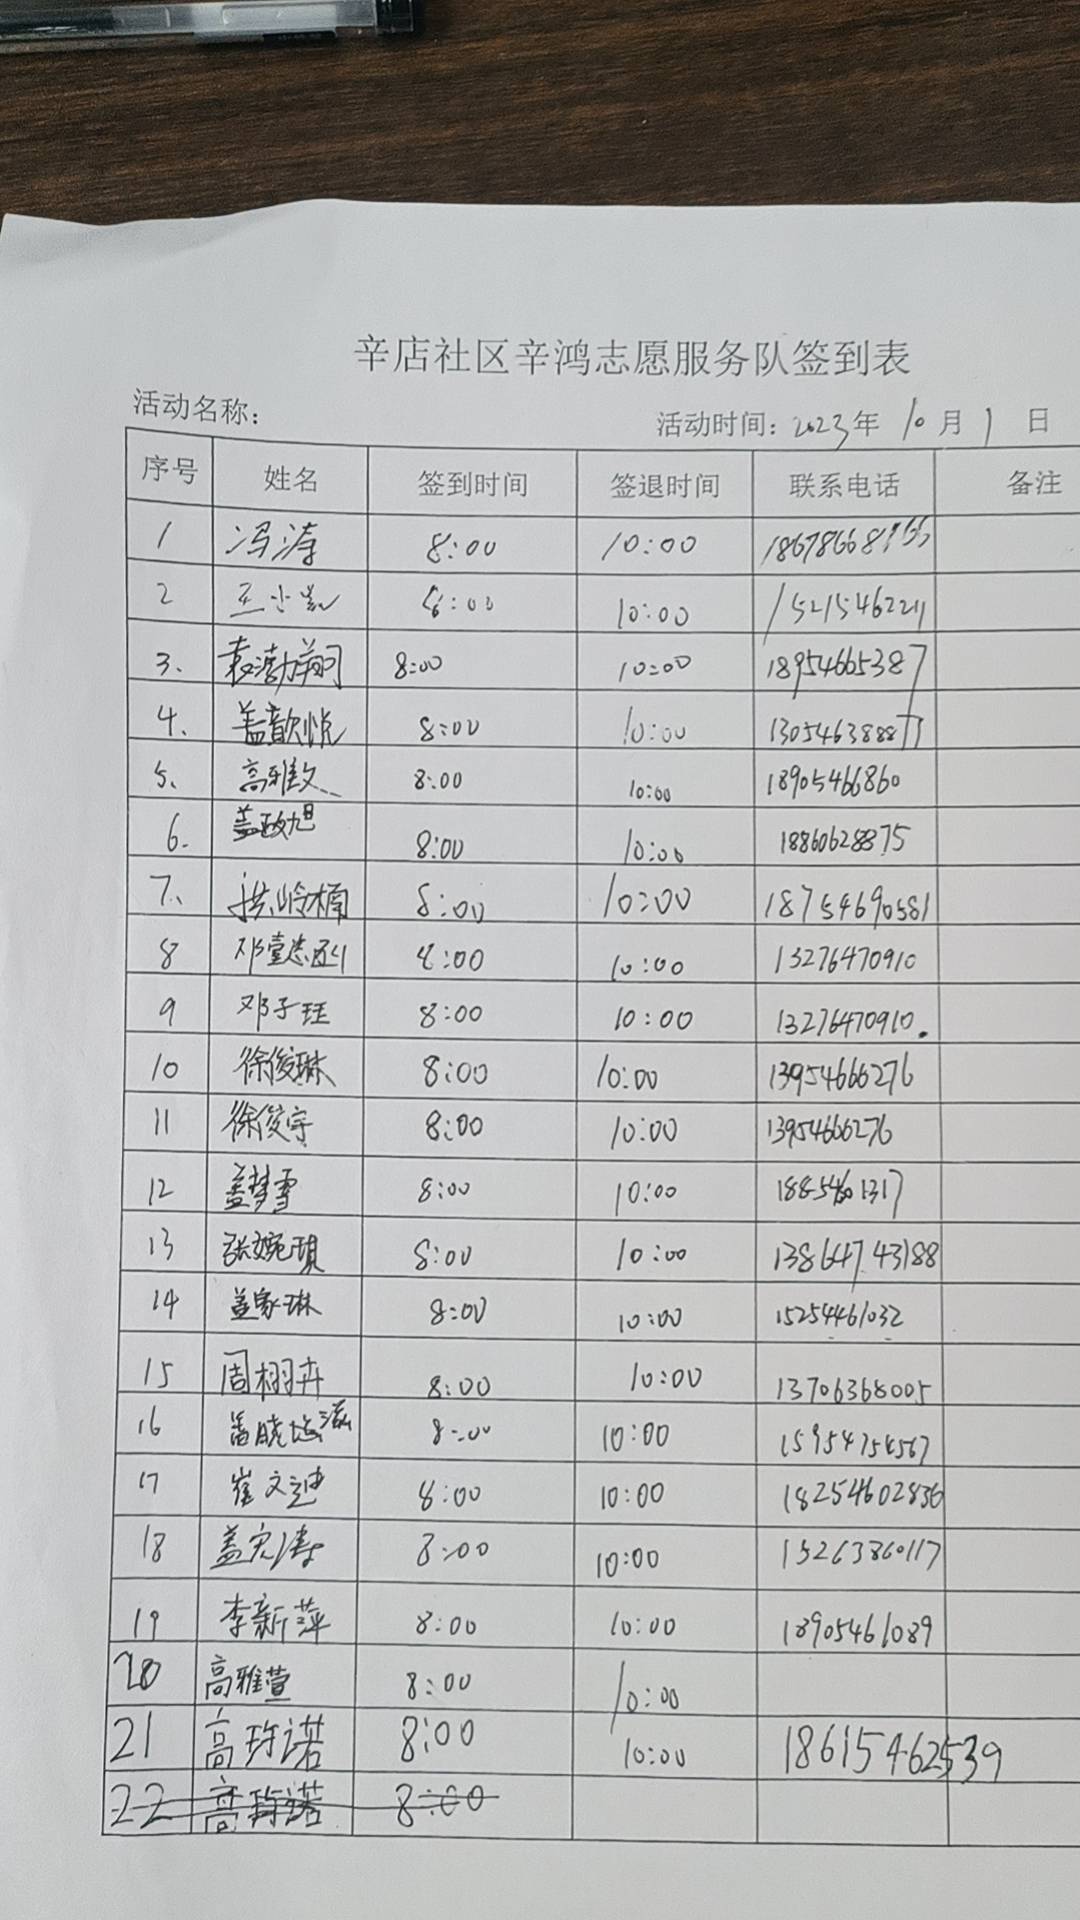 辛店社区辛鸿志愿服务队签到表
活动名称: 活动时间: 2023年 10月 1 日
序号 姓名 签到时间 签退时间 联系电话 备注
1 冯涛 8:00 10:00
2 王小凯 8:00 10:00 15215462211
3. 袁渤翔 8:00 10:00 18954665387
4. 盖歆悦 8:00 10:00 13054638887
5. 高雅文 8:00 10:00 18905466860
6. 盖政旭 8:00 10:00 18860628875
7. 8:00 10:00 18754690581
8 8:00 10:00 13276470910
9 邓子珏 8:00 10:00 13276470910.
10 徐俊琳 8:00 10:00 13954666276
11 徐俊宇 8:00 10:00 13954666276
12 盖梦雪 8:00 10:00 18854601317
13 张婉琪 8:00 10:00 13864743188
14 盖家琳 8:00 10:00 15254461032
15 周栩卉 8:00 10:00 13706368005
16 8:00 10:00 15954754567
17 崔文迪 8:00 10:00 18254602836
18 盖宪涛 8:00 10:00 15263860117
19 李新萍 8:00 10:00 18905461089
20 高雅萱 8:00 10:00
21 高珩诺 8:00 10:00 18615462539
22 高珩诺 8:00